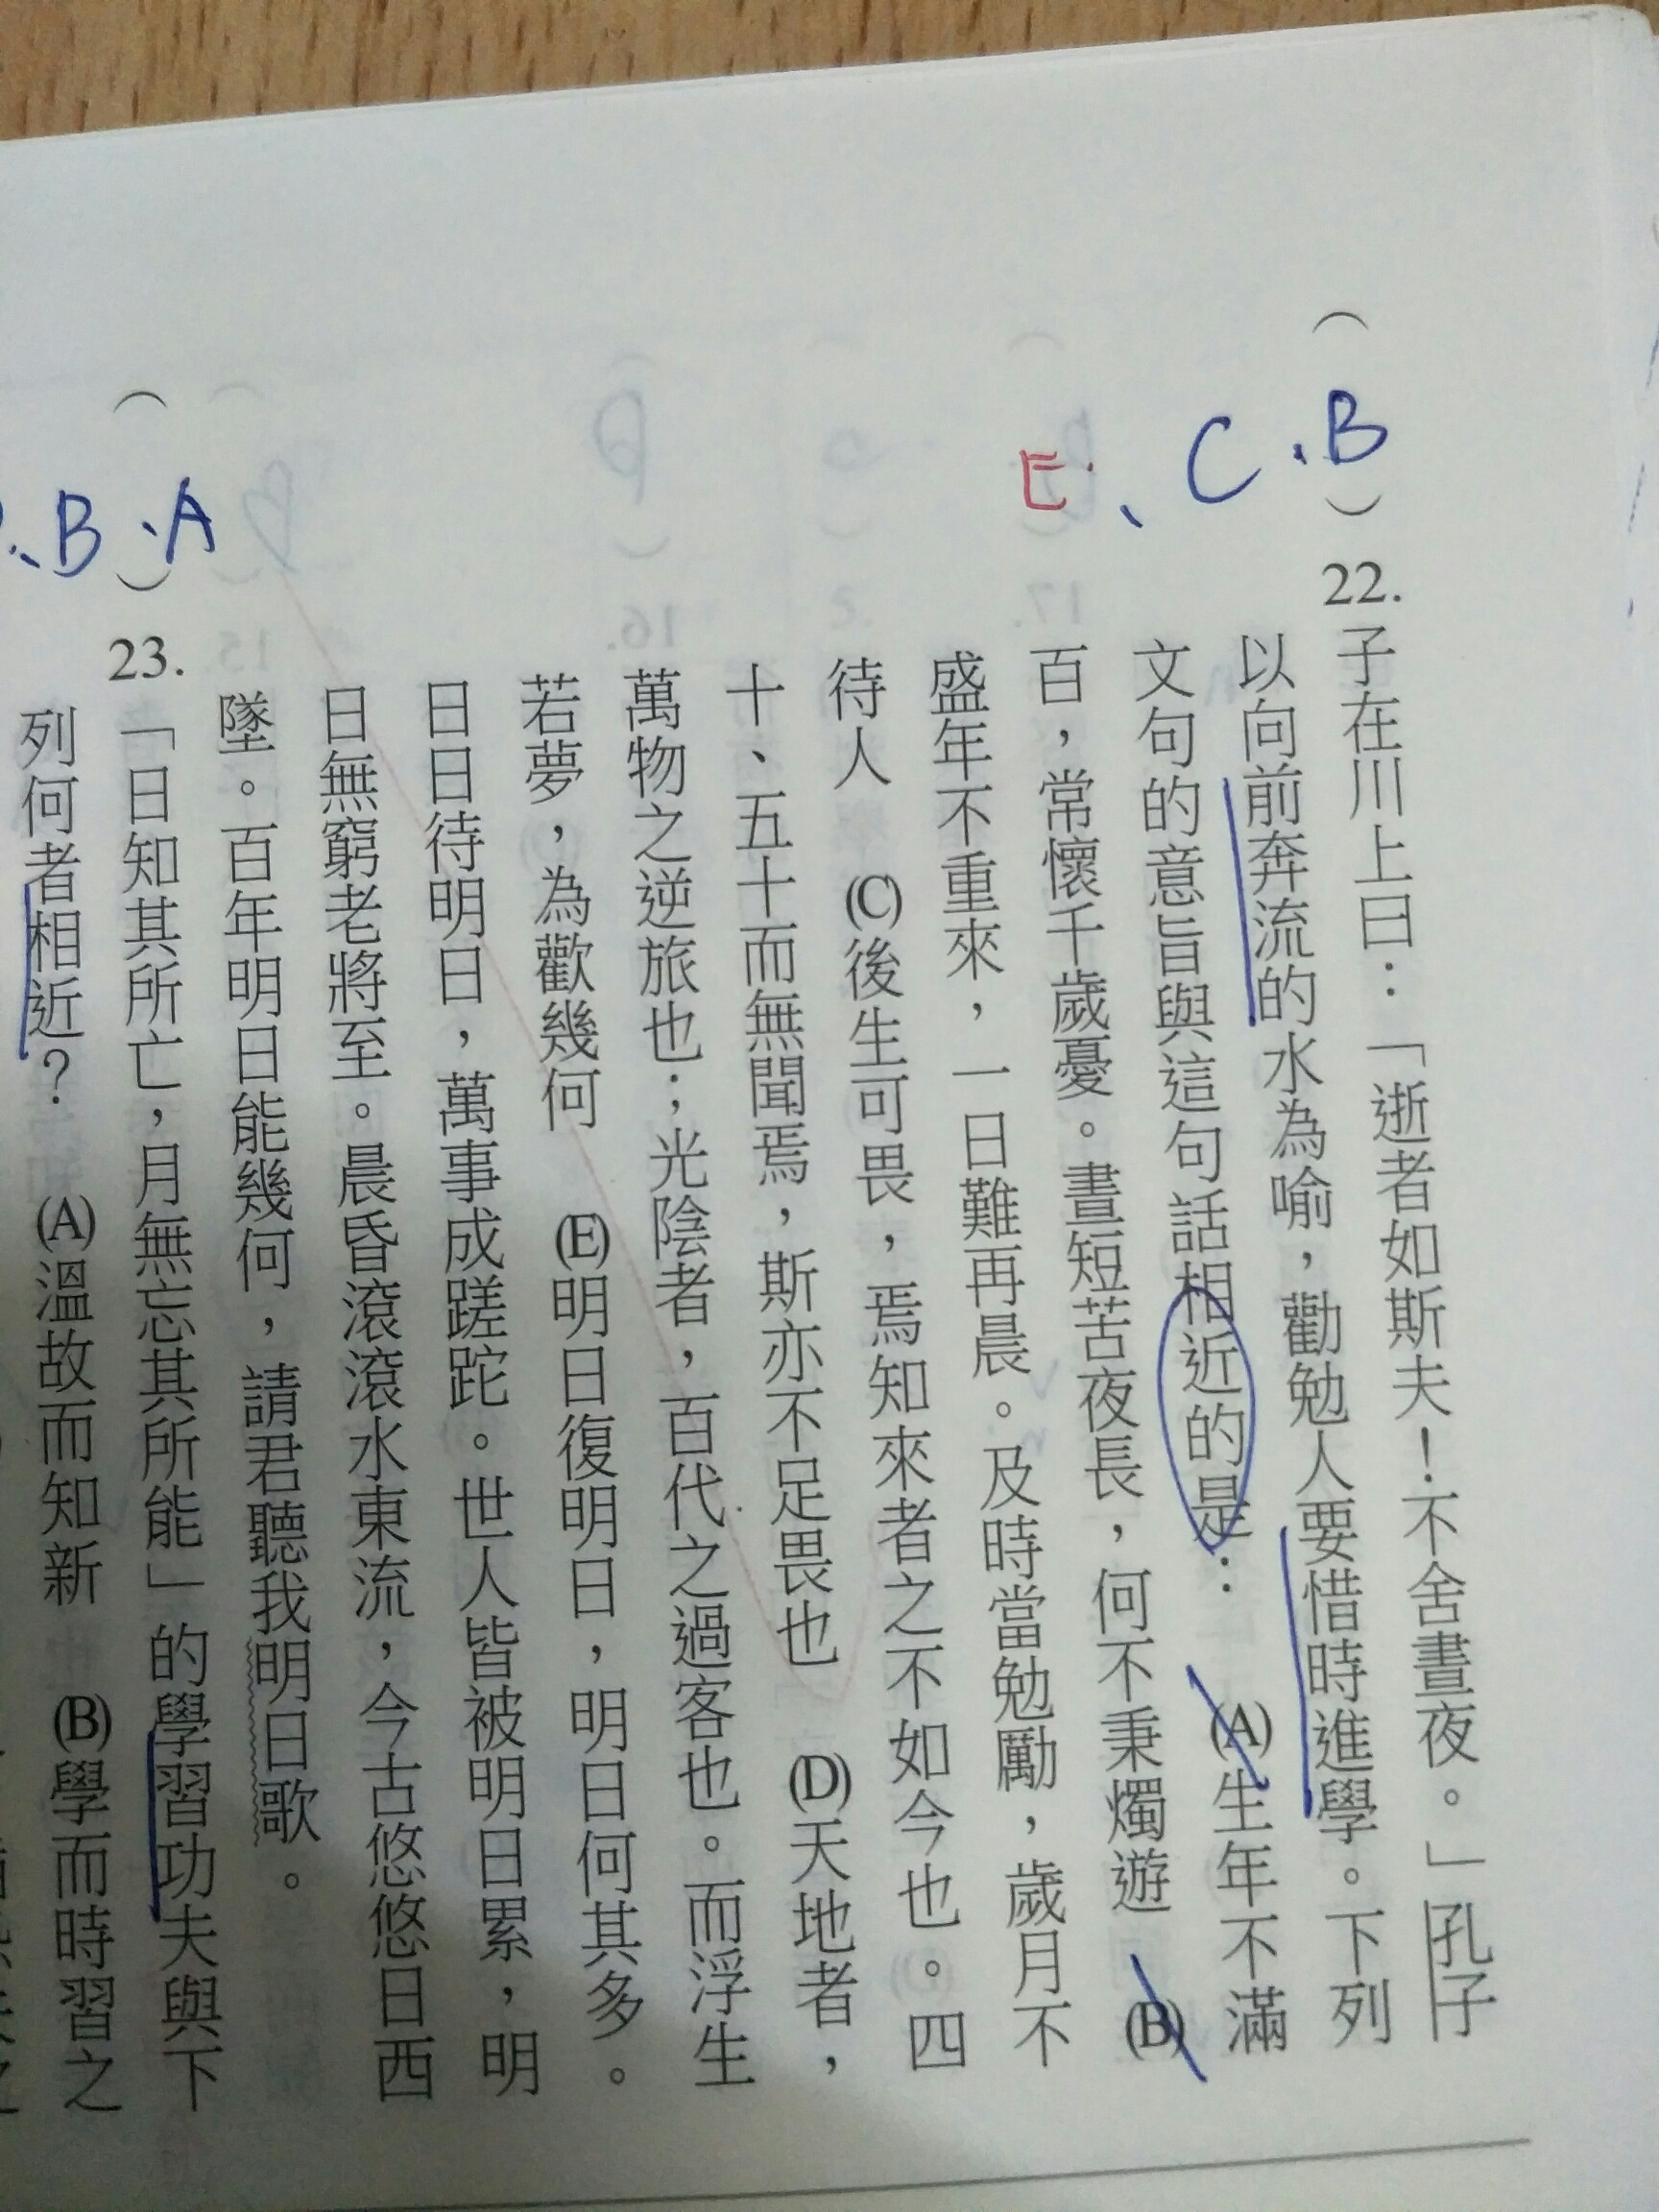 (B、C、E)22.子在川上曰：「逝者如斯夫！不舍晝夜。」孔子
以向前奔流的水為喻，勸勉人要惜時進學。下列
文句的意旨與這句話相近的是： (A)生年不滿
百，常懷千歲憂。晝短苦夜長，何不秉燭遊 (B)
盛年不重來，一日難再晨。及時當勉勵，歲月不
待人 (C)後生可畏，焉知來者之不如今也。四
十、五十而無聞焉，斯亦不足畏也 (D)天地者，
萬物之逆旅也；光陰者，百代之過客也。而浮生
若夢，為歡幾何 (E)明日復明日，明日何其多。
日日待明日，萬事成蹉跎。世人皆被明日累，明
日無窮老將至。晨昏滾滾水東流，今古悠悠日西
墜。百年明日能幾何，請君聽我明日歌。
(A、B、)23.「日知其所亡，月無忘其所能」的學習功夫與下
列何者相近？ (A)溫故而知新 (B)學而時習之